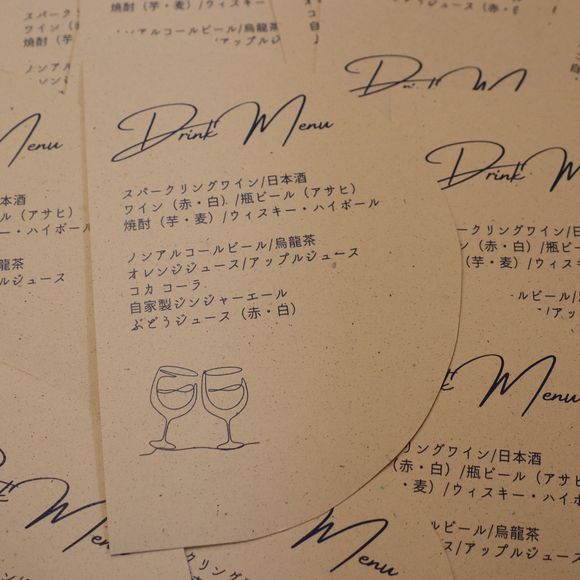 Drink Menu
スパークリングワイン/日本酒
ワイン（赤・白）/瓶ビール（アサヒ）
焼酎（芋・麦）/ウィスキー・ハイボール
ノンアルコールビール/烏龍茶
オレンジジュース/アップルジュース
コカ コーラ
自家製ジンジャーエール
ぶどうジュース（赤・白）
ワイン（赤・白
焼酎（芋・麦
ノンアル
焼酎（芋・麦）/ウィスキー・ハイボール
ノンアルコールビール/烏龍茶
アップルジュ
Menu
本酒
ール（アサヒ）
キー・ハイボール
龍茶
プルジュース
Drink M
クリングワイン/日
ン（赤・白）/瓶ビ
（芋・麦）/ウィス
ルビール/
/アッ
Menu
リングワイン/日本酒
（赤・白）/瓶ビール（アサヒ
・麦）/ウィスキー・ハイボ
ルビール/烏龍茶
ス/アップルジュース
Men
スパークリングワイ
Menu